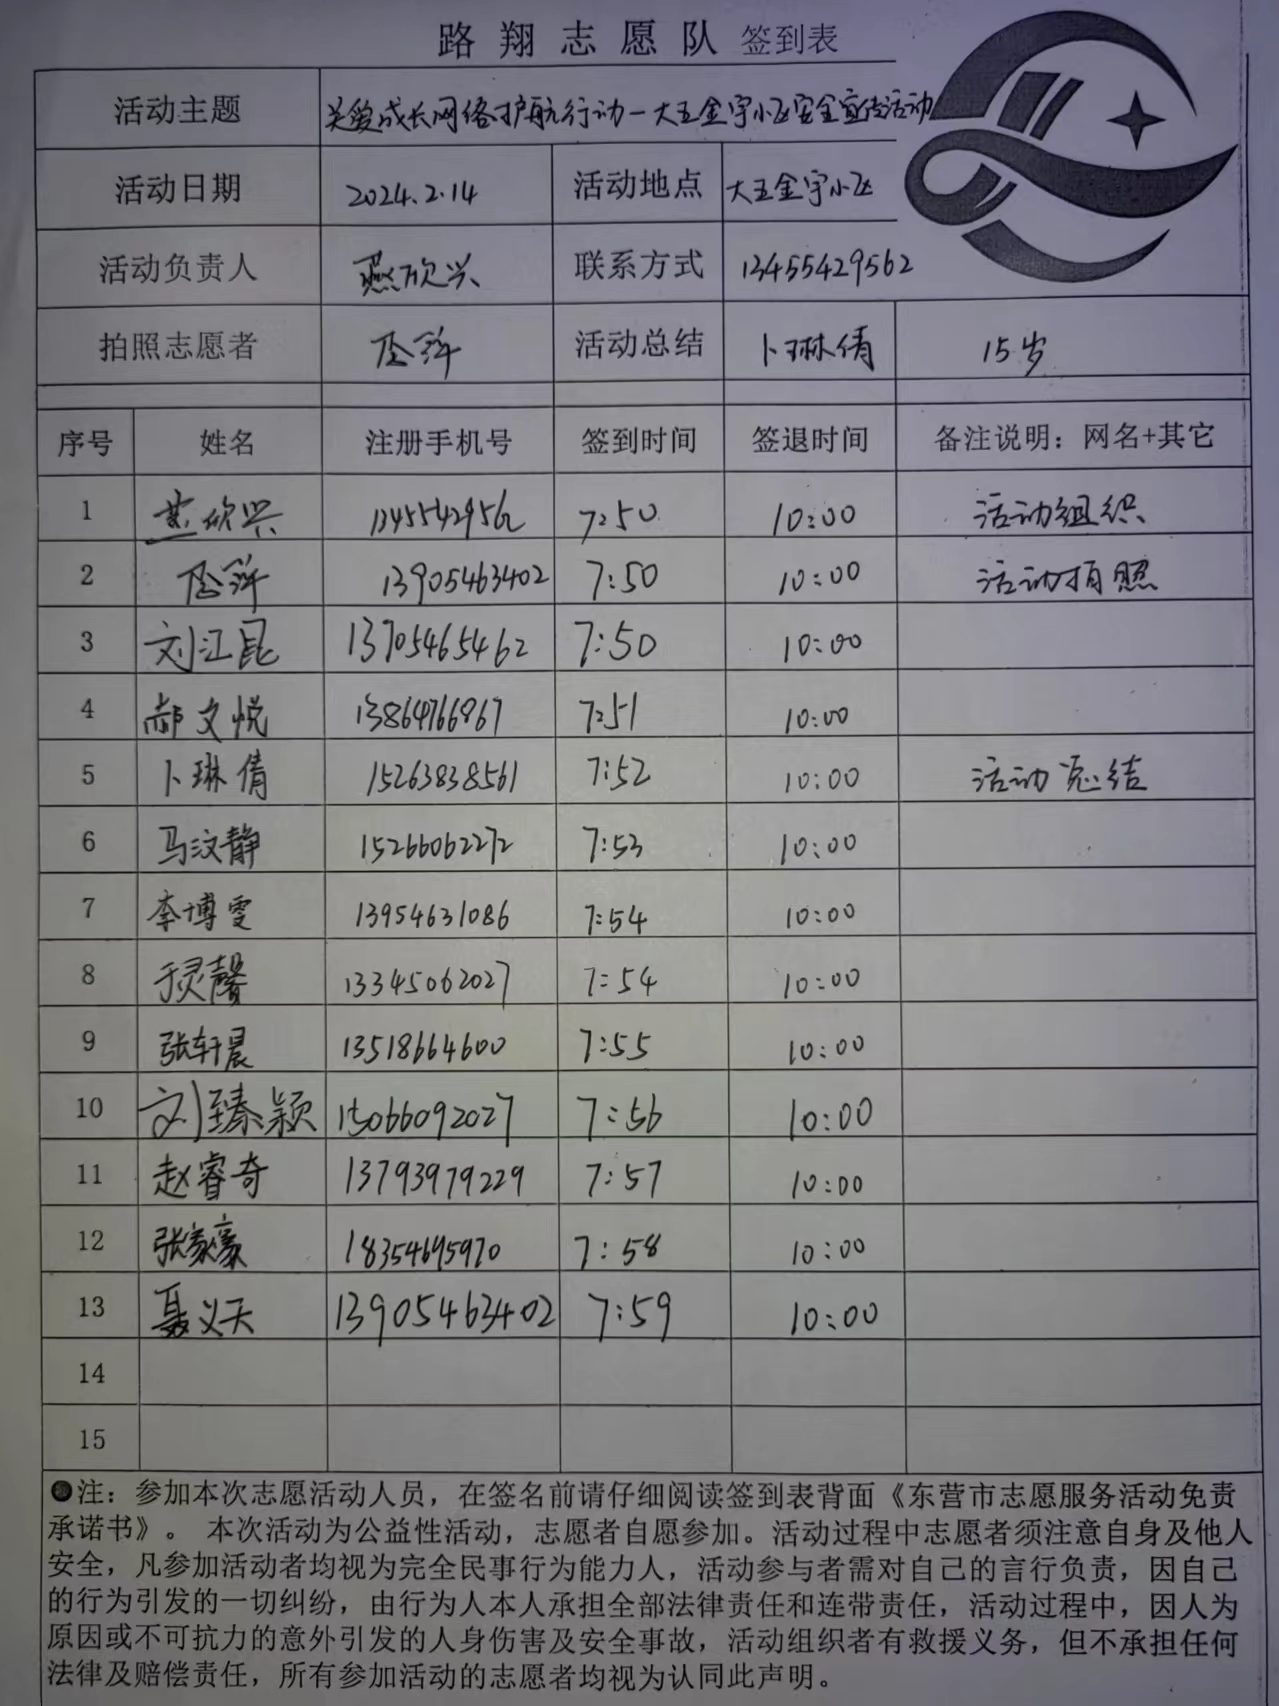 路翔志愿队 签到表
活动主题 关爱成长网络护航行动-大王金宇小区安全宣传活动
活动日期 2024.2.14 活动地点 大王金宇小区
活动负责人 燕欣兴 联系方式 13455429562
拍照志愿者 活动总结 卜琳倩 15岁
序号 姓名 注册手机号 签到时间 签退时间 备注说明：网名+其它
1 燕欣兴 13455429562 7:50 10:00 活动组织
2 13905463402 7:50 10:00 活动拍照
3 刘江昆 13705465462 7:50 10:00
4 郝文悦 13864766867 7:51 10:00
5 卜琳倩 15263838561 7:52 10:00 活动总结
6 马汶静 15266062272 7:53 10:00
7 李博雯 13954631086 7:54 10:00
8 于灵馨 13345062027 7:54 10:00
9 张轩晨 13518664600 7:55 10:00
10 刘臻颖 15066092027 7:56 10:00
11 赵睿奇 13793979229 7:57 10:00
12 张家豪 18354695970 7:58 10:00
13 聂义天 13905463402 7:59 10:00
14
15
●注：参加本次志愿活动人员，在签名前请仔细阅读签到表背面《东营市志愿服务活动免责
承诺书》。 本次活动为公益性活动，志愿者自愿参加。活动过程中志愿者须注意自身及他人
安全，凡参加活动者均视为完全民事行为能力人，活动参与者需对自己的言行负责，因自己
的行为引发的一切纠纷，由行为人本人承担全部法律责任和连带责任，活动过程中，因人为
原因或不可抗力的意外引发的人身伤害及安全事故，活动组织者有救援义务，但不承担任何
法律及赔偿责任，所有参加活动的志愿者均视为认同此声明。